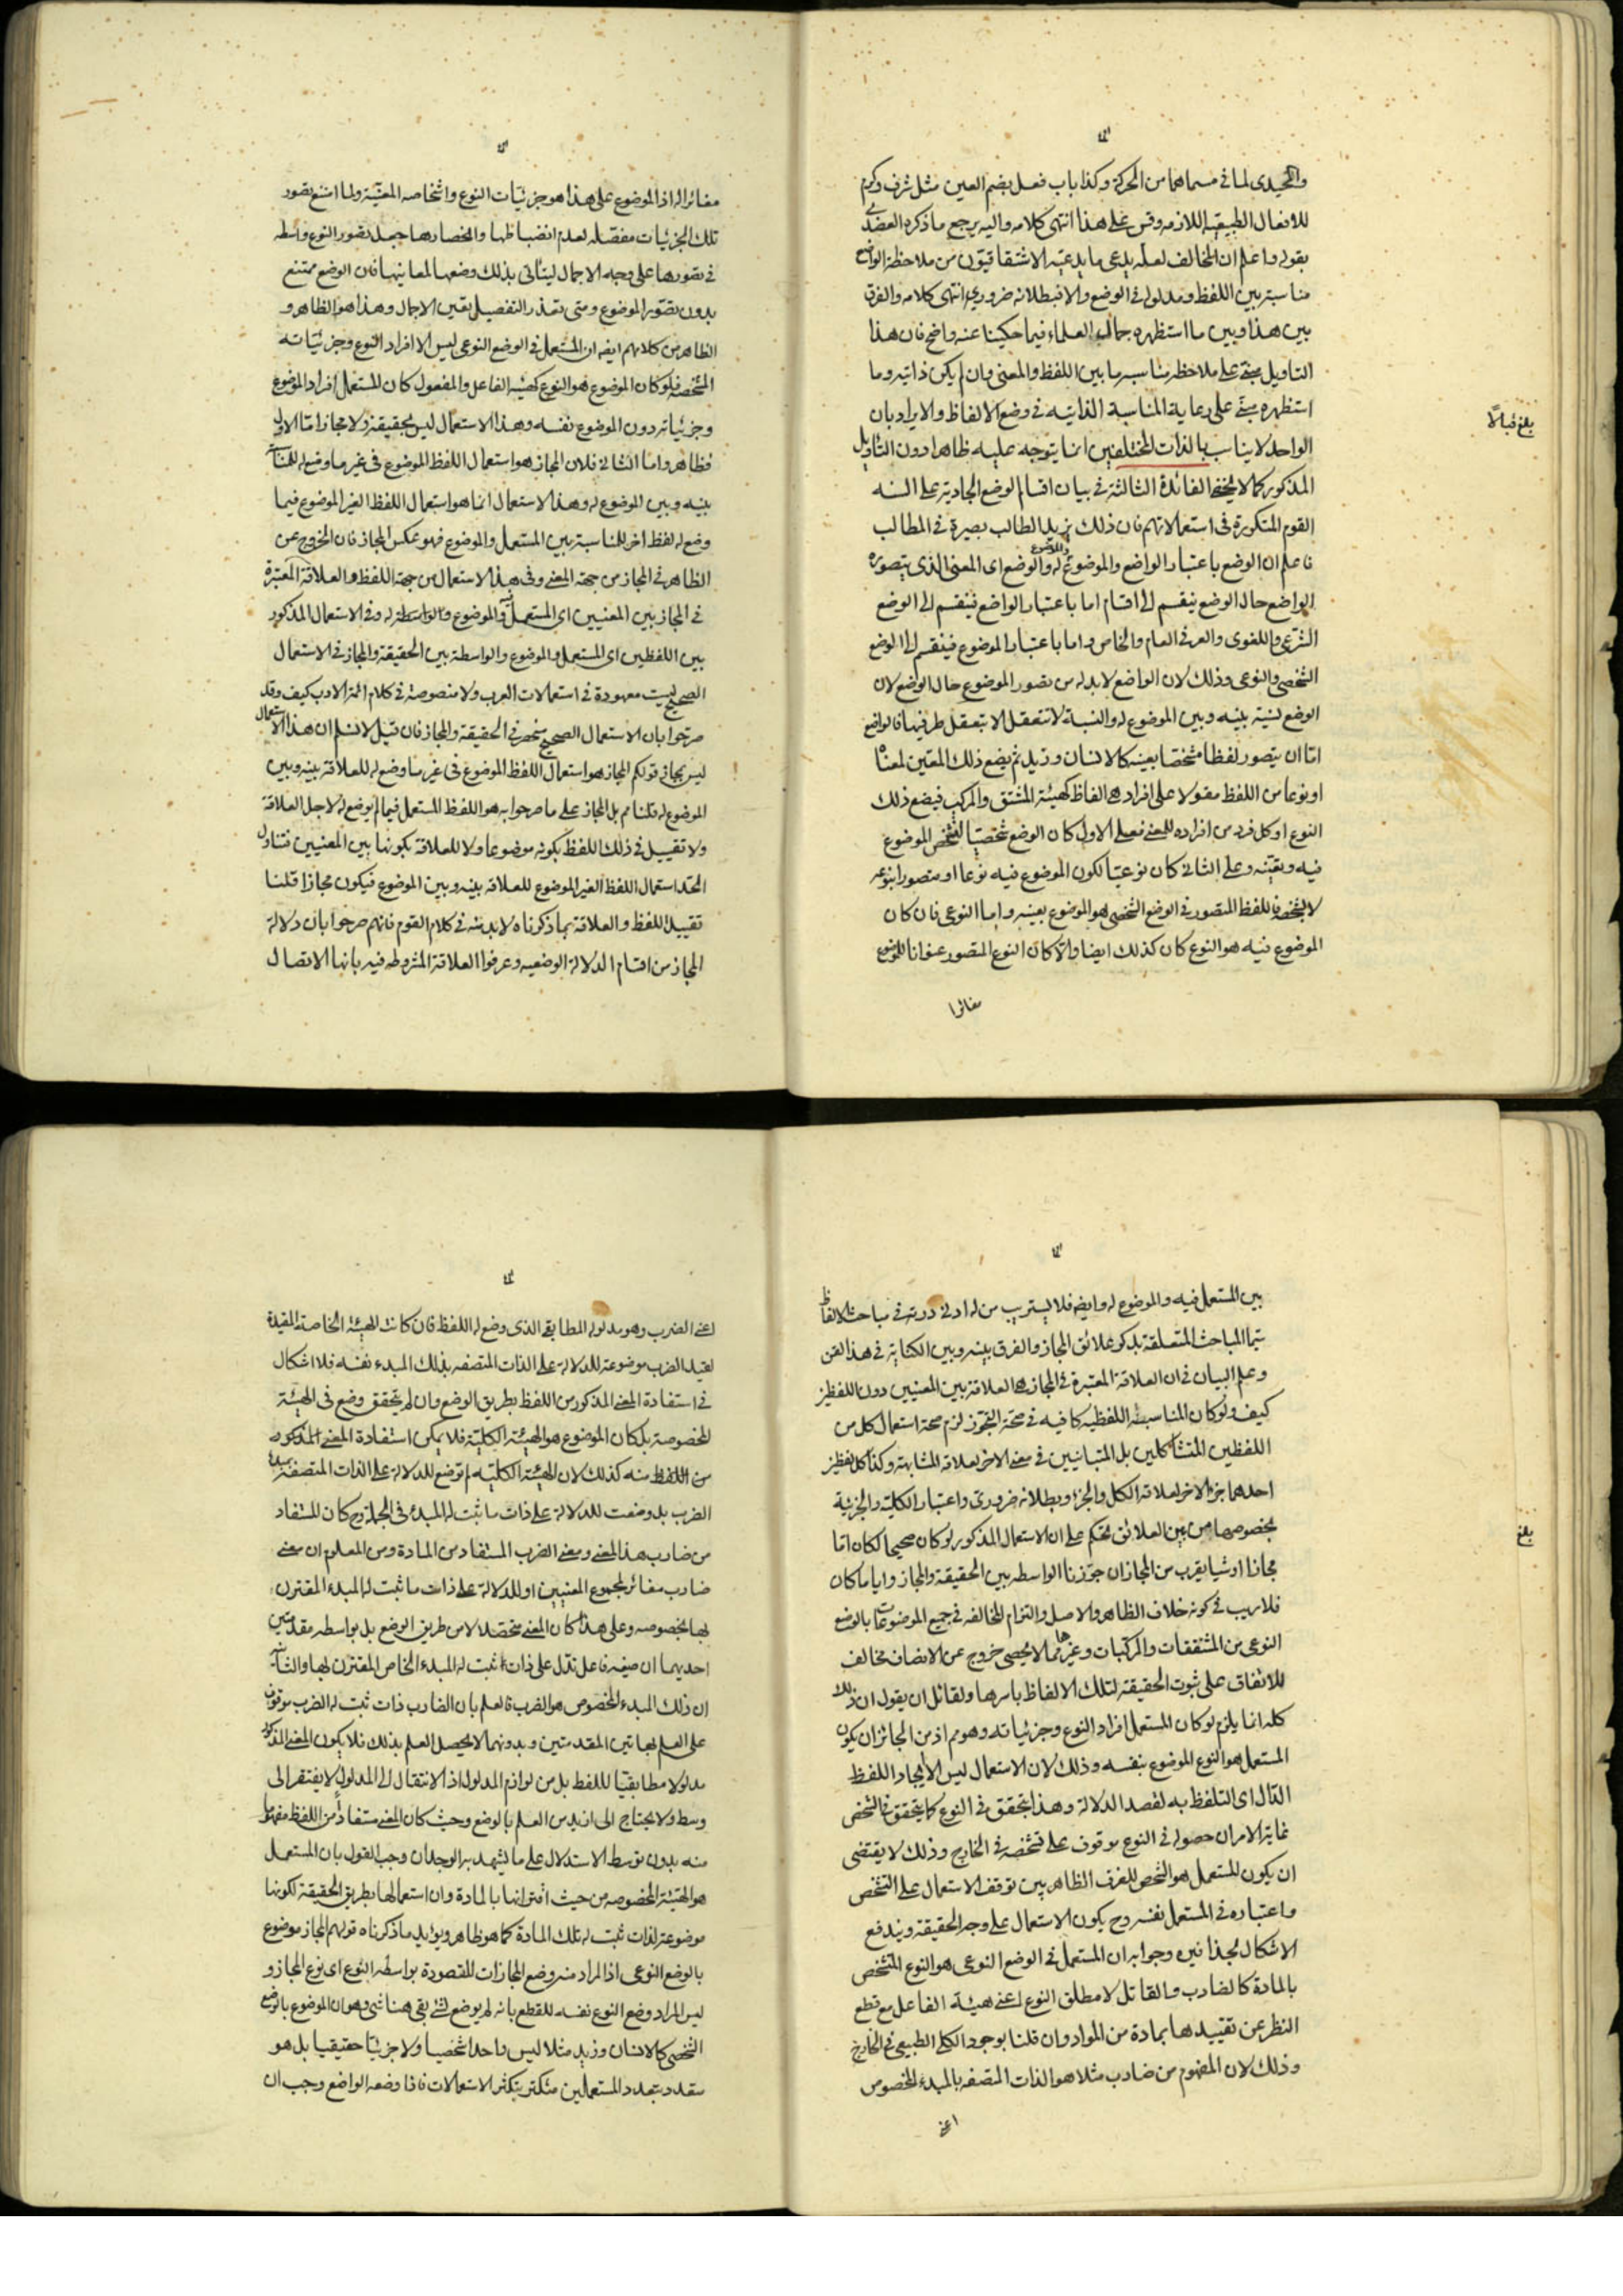 والحيدى لما فى مسماهما من الحركة وكذا باب فعل بضم العين مثل شرف وكرم
للافعال الطبيعية اللازمة وقس على هذا انتهى كلامه واليه يرجع ما ذكره العضدى
بقوله واعلم ان المخالف لعله يدعى ما يدعيه الاشتقاقيون من ملاحظة الواضع
مناسبة بين اللفظ ومدلوله فى الوضع والا فبطلانه ضرورى انتهى كلامه والفرق
بين هذا وبين ما استظهره جمال العلماء فيما حكينا عنه واضح فان هذا
التاويل مبنى على ملاحظة مناسبة ما بين اللفظ والمعنى وان لم يكن ذاتيه وما
استظهره مبنى على رعاية المناسبة الذاتيه فى وضع الالفاظ والايراد بان
الواحد لا يناسب بالذات المختلفين انما يتوجه عليه ظاهرا دون التاويل
المذكور كما لا يخفى الفائدة الثالثة فى بيان اقسام الوضع الجارية على السنه
القوم المتكررة فى استعمالاتهم فان ذلك يزيد الطالب بصيرة فى المطالب
فاعلم ان الوضع باعتبار الواضع والموضوع والموضوع له والوضع اى المعنى الذى يتصوره
الواضع حال الوضع ينقسم الى اقسام اما باعتبار الواضع فينقسم الى الوضع
الشرعى واللغوى والعرفى العام والخاص واما باعتبار الموضوع فينقسم الى الوضع
الشخصى والنوعى وذلك لان الواضع لابد له من تصور الموضوع حال الوضع لان
الوضع نسبة بينه وبين الموضوع له والنسبة لا تتعقل الا بتعقل طرفيها فالواضع
اما ان يتصور لفظا مشخصا بعينه كالانسان وزيد ثم يضع ذلك المعين لمعناه
او نوعا من اللفظ مقولا على افراد هى الفاظ كهيئة المشتق والمركب فيضع ذلك
النوع او كل فرد من افراده للمعنى فعلى الاول كان الوضع شخصيا لتشخص الموضوع
فيه وتعينه وعلى الثانى كان نوعيا لكون الموضوع فيه نوعا او متصورا بنوعه
لا بشخصه فاللفظ المتصور فى الوضع الشخصى هو الموضوع بعينه واما النوعى فان كان
الموضوع فيه هو النوع كان كذلك ايضا والا كان النوع المتصور عنوانا للموضوع
مغائرا
بلغ قبالا
مغائرا له اذ الموضوع على هذا هو جزئيات النوع واشخاصه المعينة ولما امتنع تصور
تلك الجزئيات مفصله لعدم انضباطها وانحصارها جعل تصور النوع واسطه
فى تصورها على وجه الاجمال ليتأتى بذلك وضعها لمعانيها فان الوضع ممتنع
بدون تصور الموضوع ومتى تعذر التفصيل تعين الاجمال وهذا هو الظاهر و
الظاهر من كلامهم ايضه ان المستعمل فى الوضع النوعى ليس الا افراد النوع وجزئياته
المشخصه فلو كان الموضوع هو النوع كهيئه الفاعل والمفعول كان المستعمل افراد الموضوع
وجزئياته دون الموضوع نفسه وهذا الاستعمال ليس بحقيقة ولا مجاز اما الاول
فظاهر واما الثانى فلان المجاز هو استعمال اللفظ الموضوع فى غير ما وضع له للمناسبة
بينه وبين الموضوع له وهذا الاستعمال انما هو استعمال اللفظ الغير الموضوع فيما
وضع له لفظ اخر للمناسبة بين المستعمل والموضوع فهو عكس المجاز فان الخروج عن
الظاهر فى المجاز من جهة المعنى وفى هذا الاستعمال من جهة اللفظ والعلاقة المعتبرة
فى المجاز بين المعنيين اى المستعمل والموضوع له وفى الاستعمال المذكور
بين اللفظين اى المستعمل والموضوع والواسطة بين الحقيقة والمجاز فى الاستعمال
الصحيح ليست معهودة فى استعمالات العرب ولا منصوصة فى كلام ائمة الادب كيف وقد
صرحوا بان الاستعمال الصحيح منحصر فى الحقيقة والمجاز فان قيل لا نسلم ان هذا الاستعمال
ليس بمجاز قولكم المجاز هو استعمال اللفظ الموضوع فى غير ما وضع له للعلاقة بينه وبين
الموضوع له قلنا مم بل المجاز على ما صرحوا به هو اللفظ المستعمل فيما لم يوضع له لاجل العلاقة
ولا تقييد فى ذلك اللفظ بكونه موضوعا ولا للعلاقة بكونها بين المعنيين فتناول
الحد استعمال اللفظ الغير الموضوع للعلاقة بينه وبين الموضوع فيكون مجازا قلنا
تقييد اللفظ والعلاقة بما ذكرناه لابد منه فى كلام القوم فانهم صرحوا بان دلالة
المجاز من اقسام الدلالة الوضعيه وعرفوا العلاقة المشروطه فيه بانها الاتصال
بين المستعمل فيه والموضوع له وايضه فلا يستريب من له ادنى دربة فى مباحث الالفاظ
سيما المباحث المتعلقة بذكر علائق المجاز والفرق بينه وبين الكناية فى هذا الفن
وعلم البيان فى ان العلاقة المعتبرة فى المجاز هى العلاقة بين المعنيين دون اللفظين
كيف ولو كان المناسبة اللفظيه كافيه فى صحة التجوز لزم صحة استعمال كل من
اللفظين المتشاكلين بل المتباينين فى معنى الاخر لعلاقة المشابهة وكذا كل لفظين
احدهما جزء الاخر لعلاقة الكل والجزء وبطلانه ضرورى واعتبار الكلية والجزئية
بخصوصها من بين العلائق تحكم على ان الاستعمال المذكور لو كان صحيحا لكان اما
مجازا او شيئا يقرب من المجاز ان جوزنا الواسطه بين الحقيقة والمجاز وايا ما كان
فلا ريب فى كونه خلاف الظاهر والاصل والتزام المخالفه فى جميع الموضوعات بالوضع
النوعى من المشتقات والمركبات وغيرهما مما لا يحصى خروج عن الانصاف مخالف
للاتفاق على ثبوت الحقيقة لتلك الالفاظ باسرها ولقائل ان يقول ان ذلك
كله انما يلزم لو كان المستعمل افراد النوع وجزئياته وهو مم اذ من الجائز ان يكون
المستعمل هو النوع الموضوع بنفسه وذلك لان الاستعمال ليس الا ايجاد اللفظ
الدال اى التلفظ به لقصد الدلالة وهذا يتحقق فى النوع كما يتحقق فى الشخص
غاية الامر ان حصوله فى النوع موقوف على تشخصه فى الخارج وذلك لا يقتضى
ان يكون المستعمل هو الشخص للفرق الظاهر بين توقف الاستعمال على التشخص
واعتباره فى المستعمل نفسه وح يكون الاستعمال على وجه الحقيقة ويندفع
الاشكال بحذافيره وجوابه ان المستعمل فى الوضع النوعى هو النوع المتشخص
بالمادة كالضارب والقاتل لا مطلق النوع اعنى هيئة الفاعل مع قطع
النظر عن تقييدها بمادة من المواد وان قلنا بوجود الكلى الطبيعى فى الخارج
وذلك لان المفهوم من ضارب مثلا هو الذات المتصفه بالمبدء المخصوص
اعنى
بلغ
اعنى الضرب وهو مدلوله المطابقى الذى وضع له اللفظ فان كانت الهيئة الخاصة المقيدة
لقيد الضرب موضوعة للدلالة على الذات المتصفه بذلك المبدء نفسه فلا اشكال
فى استفادة المعنى المذكور من اللفظ بطريق الوضع وان لم يتحقق وضع فى الهيئة
المخصوصة بل كان الموضوع هو الهيئة الكلية فلا يمكن استفادة المعنى المذكور
من اللفظ منه كذلك لان الهيئة الكلية لم توضع للدلالة على الذات المتصفة بمبدء
الضرب بل وضعت للدلالة على ذات ما ثبت له المبدء فى الجملة وح كان المستفاد
من ضارب هذا المعنى ومعنى الضرب المستفاد من المادة ومن المعلوم ان معنى
ضارب مغائر لمجموع المعنيين او للدلالة على ذات ما ثبت له المبدء المقترن
بها بخصوصه وعلى هذا كان المعنى متحصلا لا من طريق الوضع بل بواسطه مقدمتين
احديهما ان صيغة فاعل تدل على ذات ثبت له المبدء الخاص المقترن بها والثانية
ان ذلك المبدء المخصوص هو الضرب فالعلم بان الضارب ذات ثبت له الضرب موقوف
على العلم بهاتين المقدمتين وبدونهما لا يحصل العلم بذلك فلا يكون المعنى المذكور
مدلولا مطابقيا للفظ بل من لوازم المدلول اذ الانتقال الى المدلول لا يفتقر الى
وسط ولا يحتاج الى ازيد من العلم بالوضع وحيث كان المعنى مستفادا من اللفظ مفهوما
منه بدون توسط الاستدلال على ما يشهد به الوجدان وجب القول بان المستعمل
هو الهيئة المخصوصه من حيث اقترانها بالمادة وان استعمالها بطريق الحقيقة لكونها
موضوعة لذات ثبت له تلك المادة كما هو ظاهر ويؤيد ما ذكرناه قولهم المجاز موضوع
بالوضع النوعى اذ المراد منه وضع المجازات المقصودة بواسطه النوع اى نوع المجاز و
ليس المراد وضع النوع نفسه للقطع بانه لم يوضع لشئ بقى هنا شئ وهو ان الموضوع بالوضع
الشخصى كالانسان وزيد مثلا ليس واحدا شخصيا ولا جزئيا حقيقيا بل هو
متعدد بتعدد المستعملين متكثر بتكثر الاستعمالات فاذا وضعه الواضع وجب ان